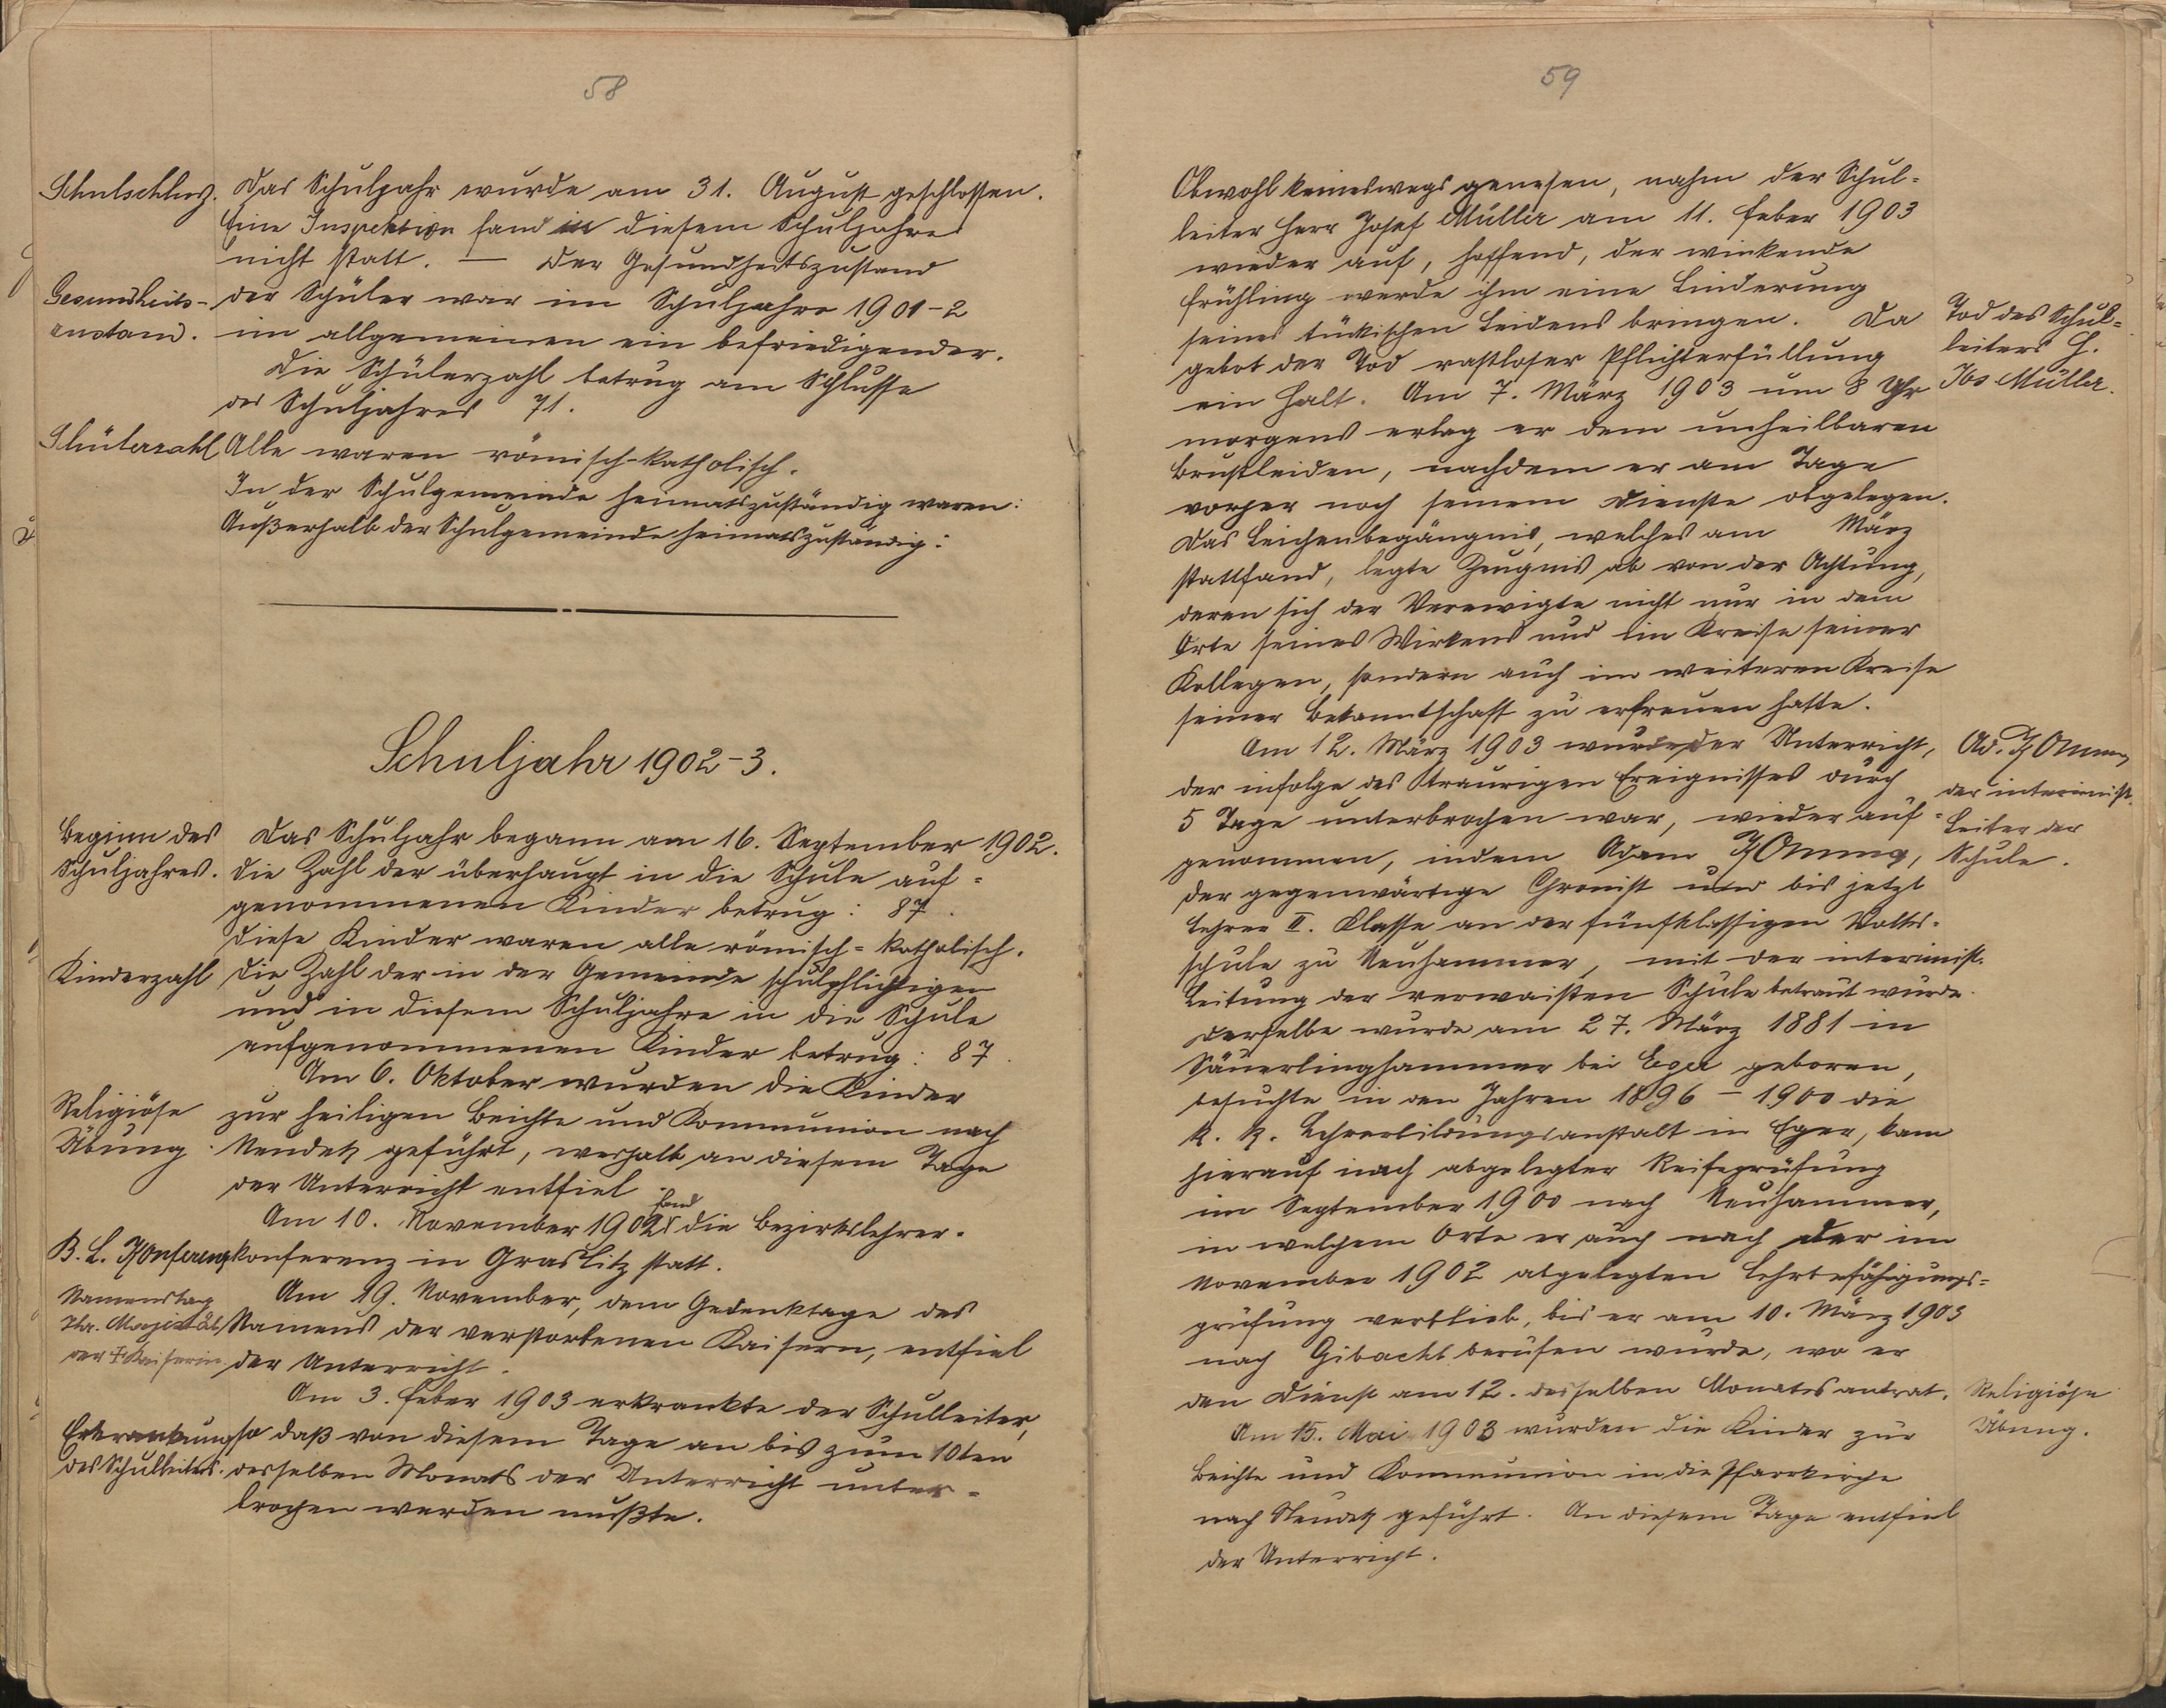 58
Schulschluß.
Das Schuljahr wurde am 31. August geschlossen.
Eine Inspektion fand in diesem Schuljahre
nicht statt. — Der Gesundheitszustand
Gesundheits-
zustand.
der Schüler war im Schuljahre 1901-2
im allgemeinen ein befriedigender.
Die Schülerzahl betrug am Schlusse
des Schuljahres 71.
Schülerzahl
Alle waren römisch-katholisch.
In der Schulgemeinde heimatszuständig waren:
Außerhalb der Schulgemeinde heimatszuständig:
Schuljahr 1902-3.
Beginn des
Schuljahres.
Das Schuljahr begann am 16. September 1902.
Die Zahl der überhaupt in die Schule auf=
genommenen Kinder betrug: 87.
Diese Kinder waren alle römisch=katholisch.
Kinderzahl
Die Zahl der in der Gemeinde schulpflichtigen
und in diesem Schuljahre in die Schule
aufgenommenen Kinder betrug: 87.
Am 6. Oktober wurden die Kinder
Religiöse
Übung.
zur heiligen Beichte und Kommunion nach
Neudek geführt, weshalb an diesem Tage
der Unterricht entfiel.
fand
Am 10. November 1902 die Bezirkslehrer-
B. L. Konferenz
konferenz in Graslitz statt.
Namenstag
Ihr. Majestät
der † Kaiserin.
Am 19. November, dem Gedenktage des
Namens der verstorbenen Kaisern, entfiel
der Unterricht.
Am 3. Feber 1903 erkrankte der Schulleiter,
Erkrankung
des Schulleiters.
so daß von diesem Tage an bis zum 10ten
desselben Monats der Unterricht unter=
brochen werden mußte.
59
Obwohl keineswegs genesen, nahm der Schul=
leiter Herr Josef Müller am 11. Feber 1903
wieder auf, hoffend, der winkende
Frühling werde ihm eine Linderung
seines tückischen Leidens bringen. Da
Tod des Schul=
leiters H.
Jos Müller.
gebot der Tod rastloser Pflichterfüllung
ein Halt. Am 7. März 1903 um 8 Uhr
morgens erlag er dem unheilbaren
Brustleiden, nachdem er am Tage
vorher noch seinem Dienste obgelegen.
Das Leichenbegängnis, welches am März
stattfand, legte Zeugnis ab von der Achtung,
deren sich der Verewigte nicht nur in dem
Orte seines Wirkens und im Kreise seiner
Kollegen, sondern auch im weiteren Kreise
seiner Bekanntschaft zu erfreuen hatte.
Am 12. März 1903 wurde der Unterricht,
der infolge des traurigen Ereignisses durch
5 Tage unterbrochen war, wieder auf=
genommen, indem Adam
Ad.
der interimist.
Leiter der
Schule.
der gegenwärtige Chronist und bis jetzt
Lehrer II. Klasse an der fünfklassigen Volks=
schule zu Neuhammer, mit der interimist.
Leitung der verwaisten Schule betraut wurde.
Derselbe wurde am 27. März 1881 in
Säuerlinghammer bei Eger geboren,
besuchte in den Jahren 1896 – 1900 die
k. k. Lehrerbildungsanstalt in Eger, kam
hierauf nach abgelegter Reifeprüfung
im September 1900 nach Neuhammer,
in welchem Orte er auch nach der im
November 1902 abgelegten Lehrbefähigungs=
prüfung verblieb, bis er am 10. März 1903
nach Gibacht berufen wurde, wo er
den Dienst am 12. desselben Monats antrat.
Religiöse
Übung.
Am 15. Mai 1903 wurden die Kinder zur
Beichte und Kommunion in die Pfarrkirche
nach Neudek geführt. An diesem Tage entfiel
der Unterricht.